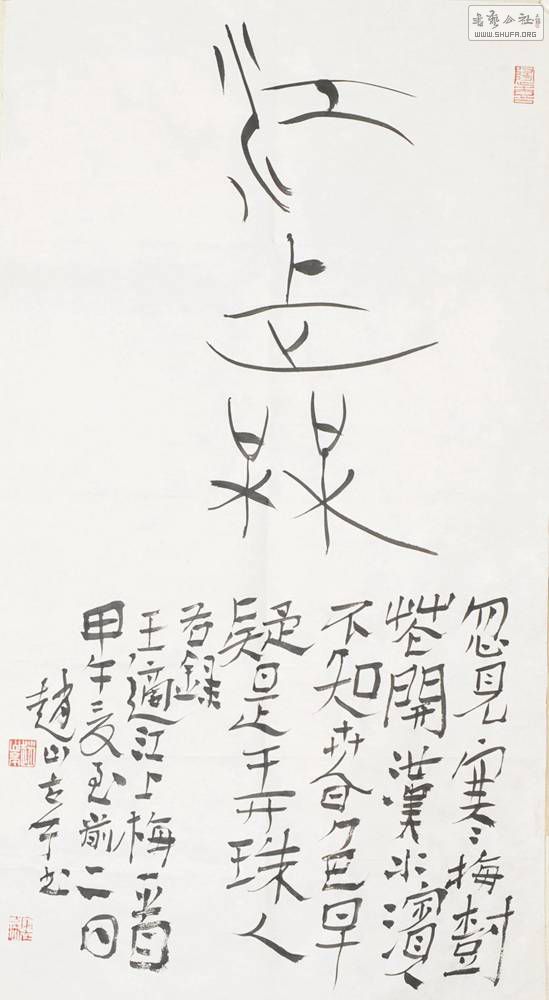 書藝公社
WWW.SHUFA.ORG
江上槑
忽見寒梅樹
花開漢水濱
不知春色早
疑是弄珠人
右録
王適江上梅一首
甲午夏至前二日
趙山